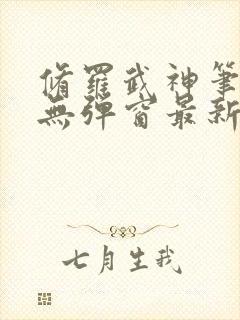 脩羅武神筆
無彈窗最新
七月生我